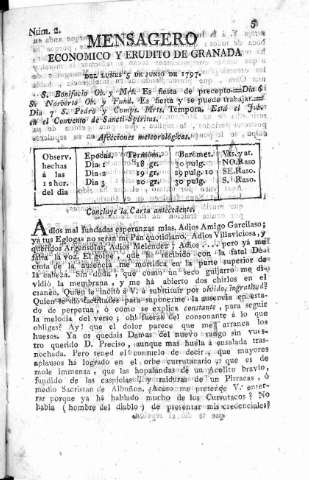 Núm. 2. 5
MENSAGERO
ECONOMICO Y ERUDITO DE GRANADA
DEL LUNES 5 DE JUNIO DE 1797.
S. Bonifacio Ob. y Mrt. Es fiesta de precepto. Dia 6
S. Norberto Ob. y Fund. Es fiesta y se puede trabajar.
Dia 7 S. Pedro y Comps. Mrts. Tempora. Está el Jub.
en el Convento de Sancti-Spiritus.
Afecciones meteorológicas.
Observ. Epocas. Termóm. Baromet. Vas. y at.
hechas Dia 1 18 gr. 30 pulg. NO. Raso
á las Dia 2 19 gr. 29 pulg. 10 SE. Raso
12 hor. Dia 3 20 gr. 30 pulg. S. Raso
del dia
Concluye la Carta antecedente.
Adios mal fundadas esperanzas mias. Adios Amigo Garcilaso;
ya tus Eglogas no serán mi Pan quotidiano. Adios Villaviciosa, y
queridos Argensolas; Adios Melendez; Adios .... pero ya me
falta la voz. El golpe, que he recibido con la fatal
cia de la ausencia me mortifica en la parte superior de
la cabeza. Sin duda, que como un seco guijarro me
vidió la membrana, y me ha abierto dos chirlos en el
craneo. Quién le indixo á V. á substituir por olvido, ingratitud?
Quien le dió facultades para suponerme la ausencia en
do de perpetua, ó como se explica constante, para seguir
la melodia del verso; oh! fuerza del consonante á lo que
obligas? Ay! que el dolor parece que me arranca los
huesos. Ya os quedais Damas del nuevo rango sin
tro querido D. Preciso, aunque mas huela á ensalada tras-
nochada. Pero tened el consuelo de decir, que mayores
aplausos ha logrado en el orbe currutacario; y que es de
mole inmensa, que las hopalandas de un Acolito bravio,
fundido de las caspicias y raiduras de un Pirracas, ó
medio Sacristan de Albuñon. Acaso me pretende V. enter-
rar porque ya hé hablado mucho de los Currutacos? No
habia (hombre del diablo) de presentar mis credenciales?